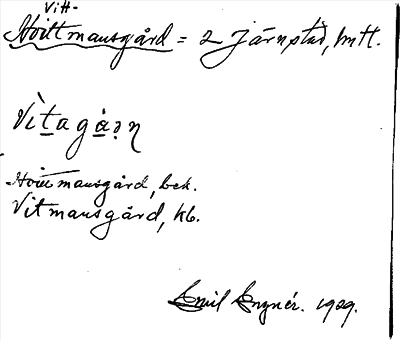 Vitt-
Hvittmansgård = 2 Järnstad, hmtl.
Vìtagàṇ
Hvitmansgård, bek.
Vitmansgård, kb.
Emil Engnér. 1929.